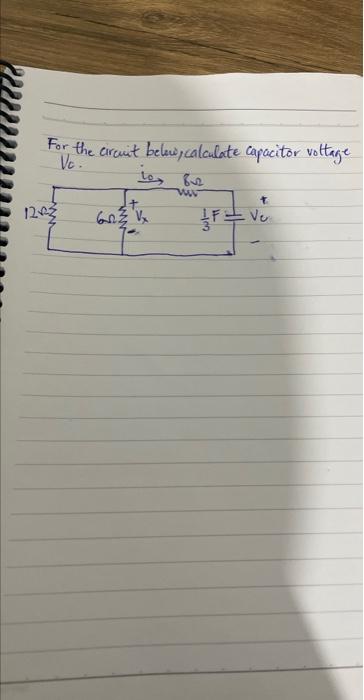 For the circuit below, calculate capacitor voltage
Vc.
io 8Ω
12Ω 6Ω + Vx - 1/3 F + Vc -